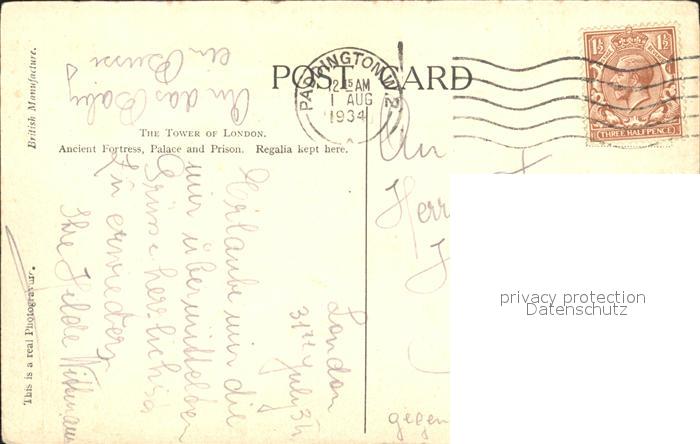 British Manufacture.
POST CARD
THE TOWER OF LONDON.
Ancient Fortress, Palace and Prison. Regalia kept here.
This is a real Photogravure.
PADDINGTON.W.2
2 15 AM
1 AUG
1934
1½ 1½
THREE HALFPENCE
An das Baby
ein Bussi
London
31st July 34
Erlaube mir die
mir übermittelten
Grüsse herzlichst
zu erwiedern
Ihre Hilde
An
Herr
gegen
privacy protection
Datenschutz